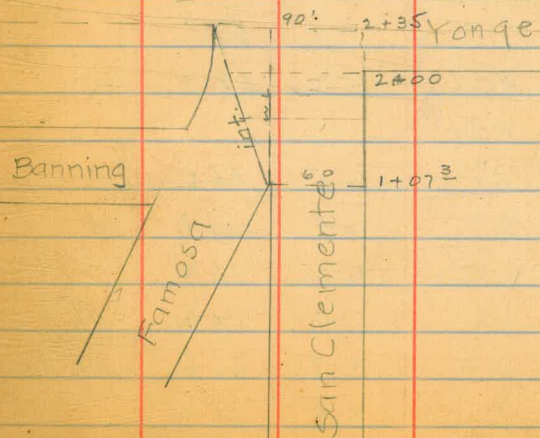 90'
2+35 Yonge
2+00
int.
Banning
1+07³
Famosa
San Clemente